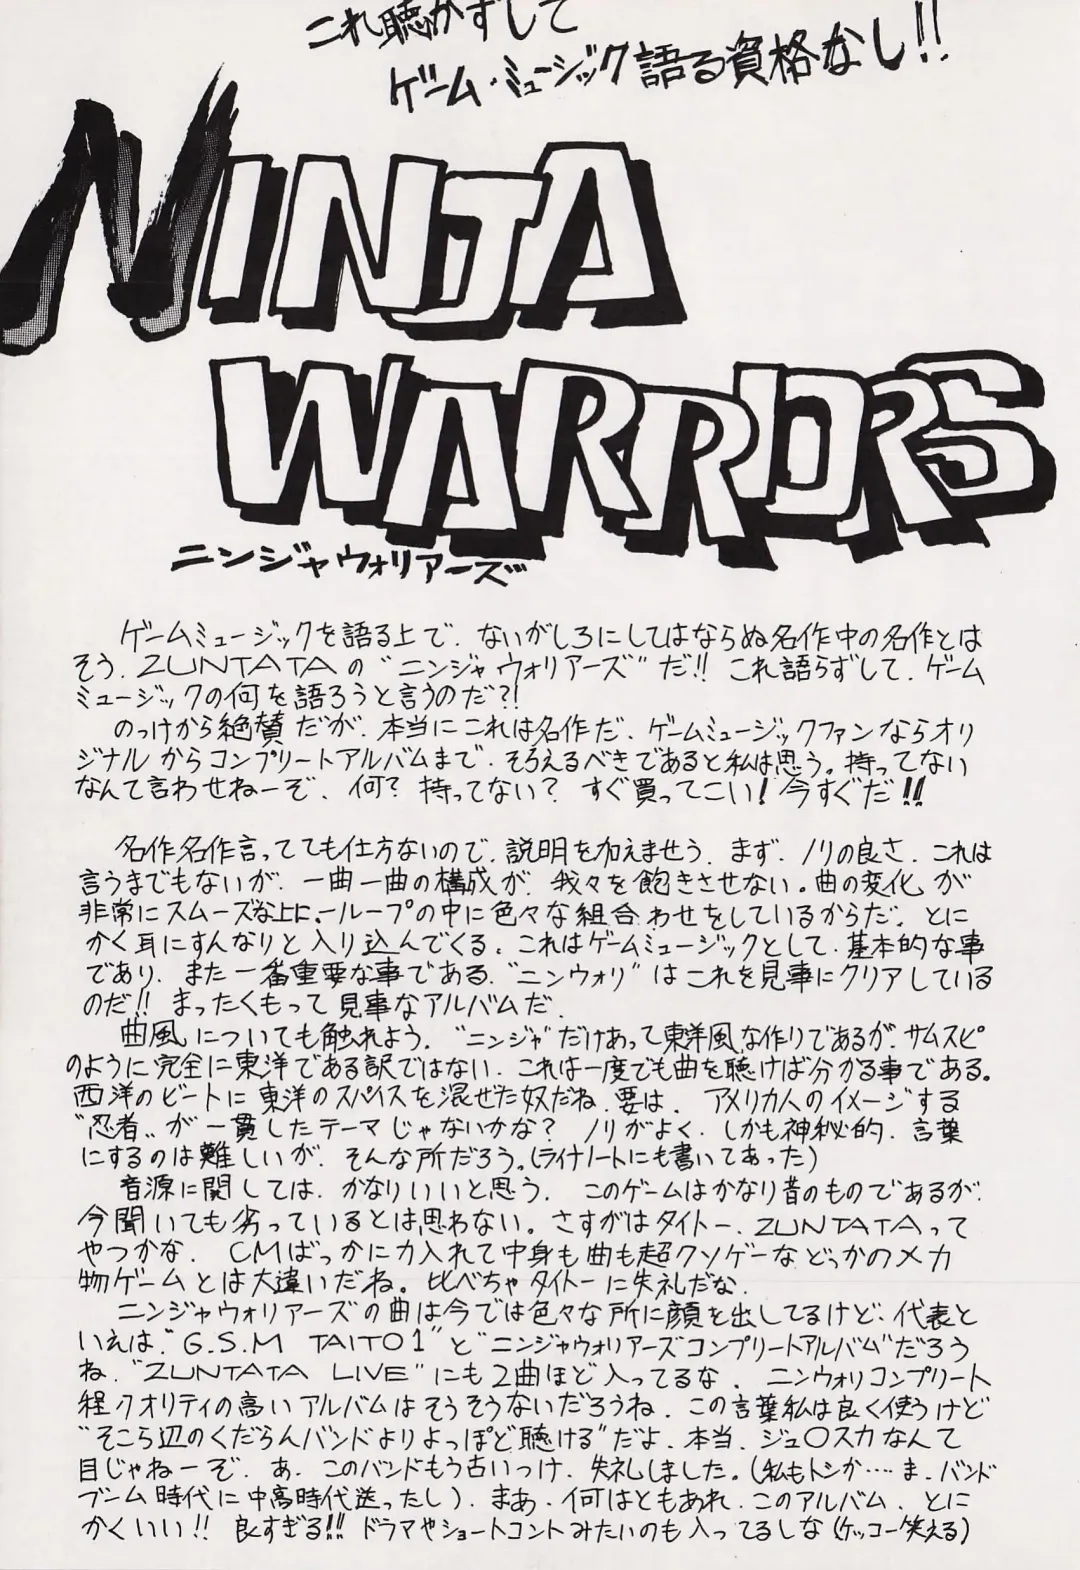 これ聴かずして
ゲーム・ミュージック語る資格なし!!
NINJA
WARRIORS
ニンジャウォリアーズ
ゲームミュージックを語る上で、ないがしろにしてはならぬ名作中の名作とは
そう、ZUNTATAの“ニンジャウォリアーズ”だ!! これ語らずして、ゲーム
ミュージックの何を語ろうと言うのだ?!
のっけから絶賛だが、本当にこれは名作だ、ゲームミュージックファンならオリ
ジナルからコンプリートアルバムまで、そろえるべきであると私は思う。持ってない
なんて言わせねーぞ、何? 持ってない? すぐ買ってこい! 今すぐだ!!
名作名作言ってても仕方ないので、説明を加えませう、まず、ノリの良さ、これは
言うまでもないが、一曲一曲の構成が、我々を飽きさせない。曲の変化が
非常にスムーズな上に、一ループの中に色々な組合わせをしているからだ、とに
かく耳にすんなりと入り込んでくる。これはゲームミュージックとして、基本的な事
であり、また一番重要な事である、“ニンウォリ”はこれを見事にクリアしている
のだ!! まったくもって見事なアルバムだ、
曲風についても触れよう、“ニンジャ”だけあって東洋風な作りであるが、サムスピ
のように完全に東洋である訳ではない、これは一度でも曲を聴けば分かる事である。
西洋のビートに東洋のスパイスを混ぜた奴だね、要は、アメリカ人のイメージする
“忍者”が一貫したテーマじゃないかな? ノリがよく、しかも神秘的、言葉
にするのは難しいが、そんな所だろう。(ライナノートにも書いてあった)
音源に関しては、かなりいいと思う、このゲームはかなり昔のものであるが、
今聞いても劣っているとは思わない。さすがはタイトー、ZUNTATAって
やつかな、CMばっかに力入れて中身も曲も超クソゲーなどっかのメカ
物ゲームとは大違いだね。比べちゃタイトーに失礼だな、
ニンジャウォリアーズの曲は今では色々な所に顔を出してるけど、代表と
いえば、“G.S.M TAITO1”と“ニンジャウォリアーズコンプリートアルバム”だろう
ね、“ZUNTATA LIVE”にも2曲ほど入ってるな、ニンウォリコンプリート
程クオリティの高いアルバムはそうそうないだろうね、この言葉私は良く使うけど
“そこら辺のくだらんバンドよりよっぽど聴ける”だよ、本当、ジュ〇スカなんて
目じゃねーぞ、あ、このバンドもう古いっけ、失礼しました。(私もトシか‥‥ま、バンド
ブーム時代に中高時代送ったし)、まあ、何はともあれ、このアルバム、とに
かくいい!! 良すぎる!! ドラマやショートコントみたいのも入ってるしな(ケッコー笑える)